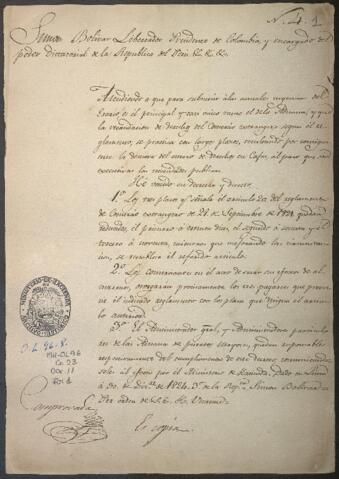 N. 4. 1
Simon Bolivar Libertador Presidente de Colombia, y encargado del
poder Dictatorial de la Republica del Perú &. &. &.
Atendiendo a que para subvenir á las actuales urgencias del
Erario es el principal y casi unico ramo el de la Aduana, y que
la recaudacion de derechos del Comercio extrangero segun el re-
glamento, se practica con largos plazos, resultando por consiguien-
te la demora del ingreso de derechos en Cajas, al paso que son
executivas las necesidades publicas.
He venido en decretar y decreto.
1º. Los tres plazos que señala el articulo 20 del reglamento
de Comercio extrangero de 21 de Septiembre de 1821 quedan
reducidos, el primero á treinta dias, el segundo á sesenta y el
tercero á noventa, mientras que mejorando las circunstan-
cias, se restablece el referido articulo.
2º. Los Comerciantes en el acto de sacar sus efectos de al-
macenes, otorgaran precisamente los tres pagarés que previe-
ne el indicado reglamento con los plazos que asigna el articulo
anterior.
3º. El Administrador gral, y Administradores particula-
res de las Aduanas de puertos mayores, quedan responsables
del cumplimiento de este decreto, comunicandose-
sele al efecto por el Ministerio de Hacienda. Dado en Lima
á de Dic.bre de 1824. 3º de la Rep.ca Simon Bolivar=
Por orden de S.E.
Es copia
Comprovada
O.L. 96-8.
MH-OL96
Ca. 23
Doc 11
Fol 1